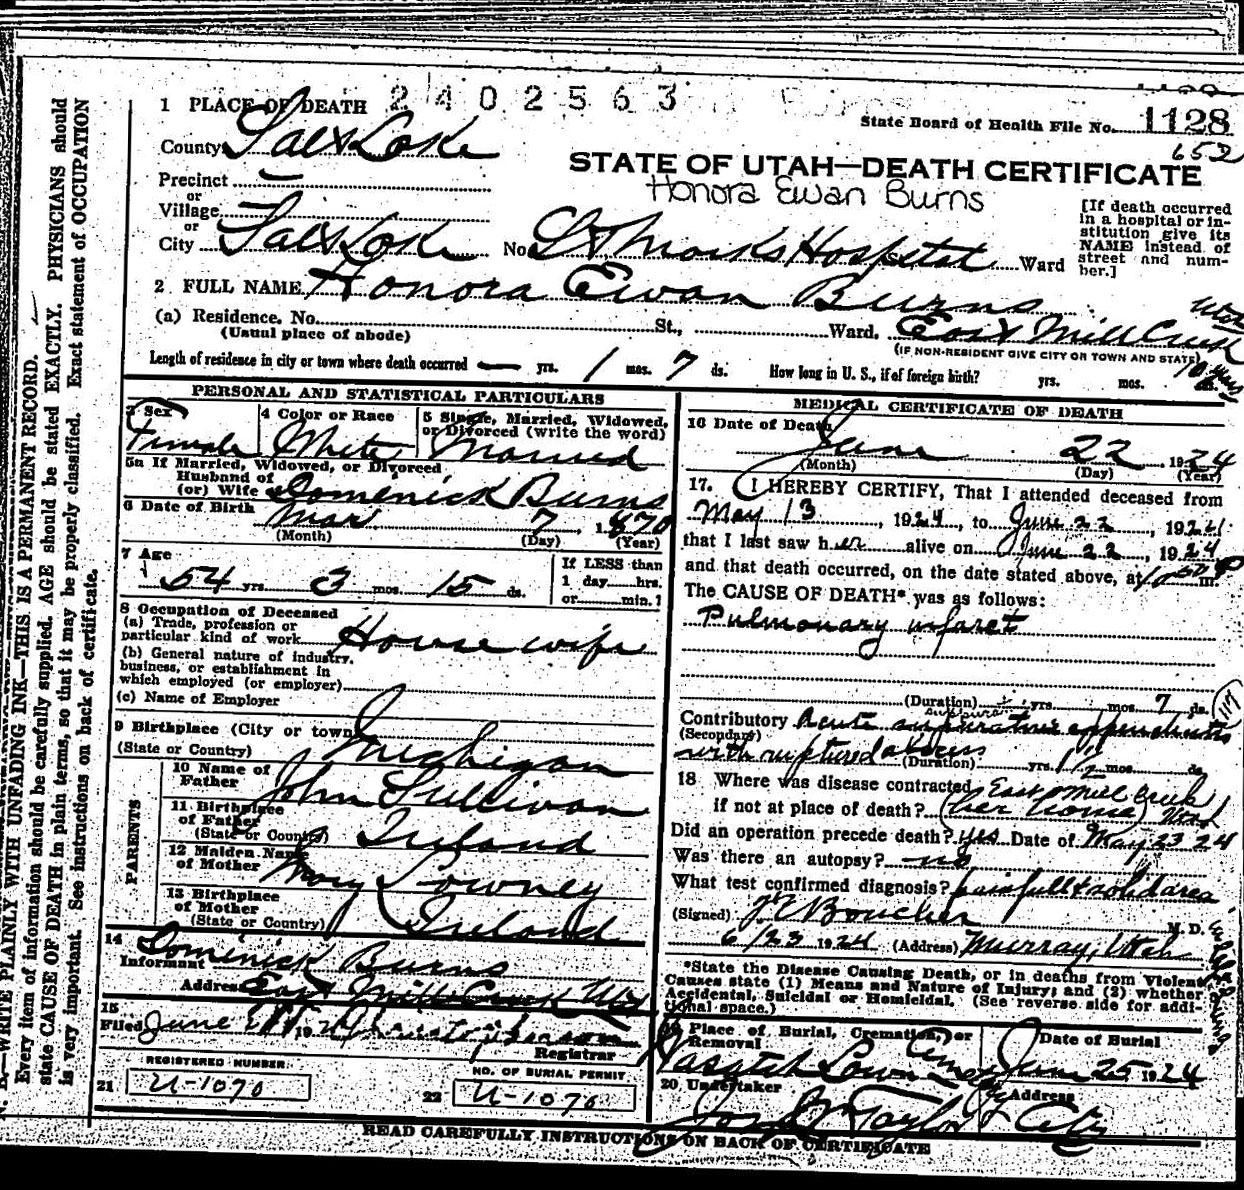 1 PLACE OF DEATH 2402563
State Board of Health File No. 1128
County Salt Lake
652
STATE OF UTAH—DEATH CERTIFICATE
Precinct
Honora Ewan Burns
or
Village
or
City Salt Lake No. St Marks Hospital Ward
[If death occurred
in a hospital or in-
stitution give its
NAME instead of
street and num-
ber.]
2 FULL NAME Honora Ewan Burns
(a) Residence. No. St., Ward. East Mill Creek
(Usual place of abode)
(IF NON-RESIDENT GIVE CITY OR TOWN AND STATE)
Length of residence in city or town where death occurred — yrs. 1 mos. 7 ds. How long in U. S., if of foreign birth? yrs. mos. ds.
PERSONAL AND STATISTICAL PARTICULARS
3 Sex Female
4 Color or Race White
5 Single, Married, Widowed,
or Divorced (write the word)
Married
5a If Married, Widowed, or Divorced
Husband of
(or) Wife Domenick Burns
6 Date of Birth Mar 7, 1870
(Month) (Day) (Year)
7 Age
54 yrs. 3 mos. 15 ds.
If LESS than
1 day......hrs.
or......min.?
8 Occupation of Deceased
(a) Trade, profession or
particular kind of work House wife
(b) General nature of industry,
business, or establishment in
which employed (or employer)
(c) Name of Employer
9 Birthplace (City or town)
(State or Country) Michigan
PARENTS
10 Name of
Father John Sullivan
11 Birthplace
of Father
(State or Country) Ireland
12 Maiden Name
of Mother Mary Lowney
13 Birthplace
of Mother
(State or Country) Ireland
14
Informant Dominick Burns
Address East Mill Creek Utah
15
Filed June
Registrar
REGISTERED NUMBER
21 U-1070
NO. OF BURIAL PERMIT
22 U-1070
MEDICAL CERTIFICATE OF DEATH
16 Date of Death
June 22 1924
(Month) (Day) (Year)
17. I HEREBY CERTIFY, That I attended deceased from
May 13, 1924, to June 22, 1924
that I last saw her alive on June 22, 1924
and that death occurred, on the date stated above, at 10 50 P m.
The CAUSE OF DEATH* was as follows:
Pulmonary infarct
(Duration) yrs. mos. 7 ds.
117
Contributory Acute suppurative appendicitis
(Secondary)
with ruptured abscess
(Duration) yrs. 1 1/2 mos. ds.
18 Where was disease contracted East Mill Creek
if not at place of death? (her home) Utah
Did an operation precede death? yes Date of May 23 24
Was there an autopsy? no
What test confirmed diagnosis?
(Signed) J E Boucher M. D.
6/23 1924 (Address) Murray, Utah
*State the Disease Causing Death, or in deaths from Violent
Causes state (1) Means and Nature of Injury; and (2) whether
Accidental, Suicidal or Homicidal. (See reverse side for addi-
tional space.)
19 Place of Burial, Cremation, or
Removal
Wasatch Lawn Cemetery
Date of Burial
June 25 1924
20 Undertaker
Jos Wm Taylor
Address
City
READ CAREFULLY INSTRUCTIONS ON BACK OF CERTIFICATE
WRITE PLAINLY WITH UNFADING INK—THIS IS A PERMANENT RECORD.
Every item of information should be carefully supplied. AGE should be stated EXACTLY. PHYSICIANS should
state CAUSE OF DEATH in plain terms, so that it may be properly classified. Exact statement of OCCUPATION
is very important. See instructions on back of certificate.